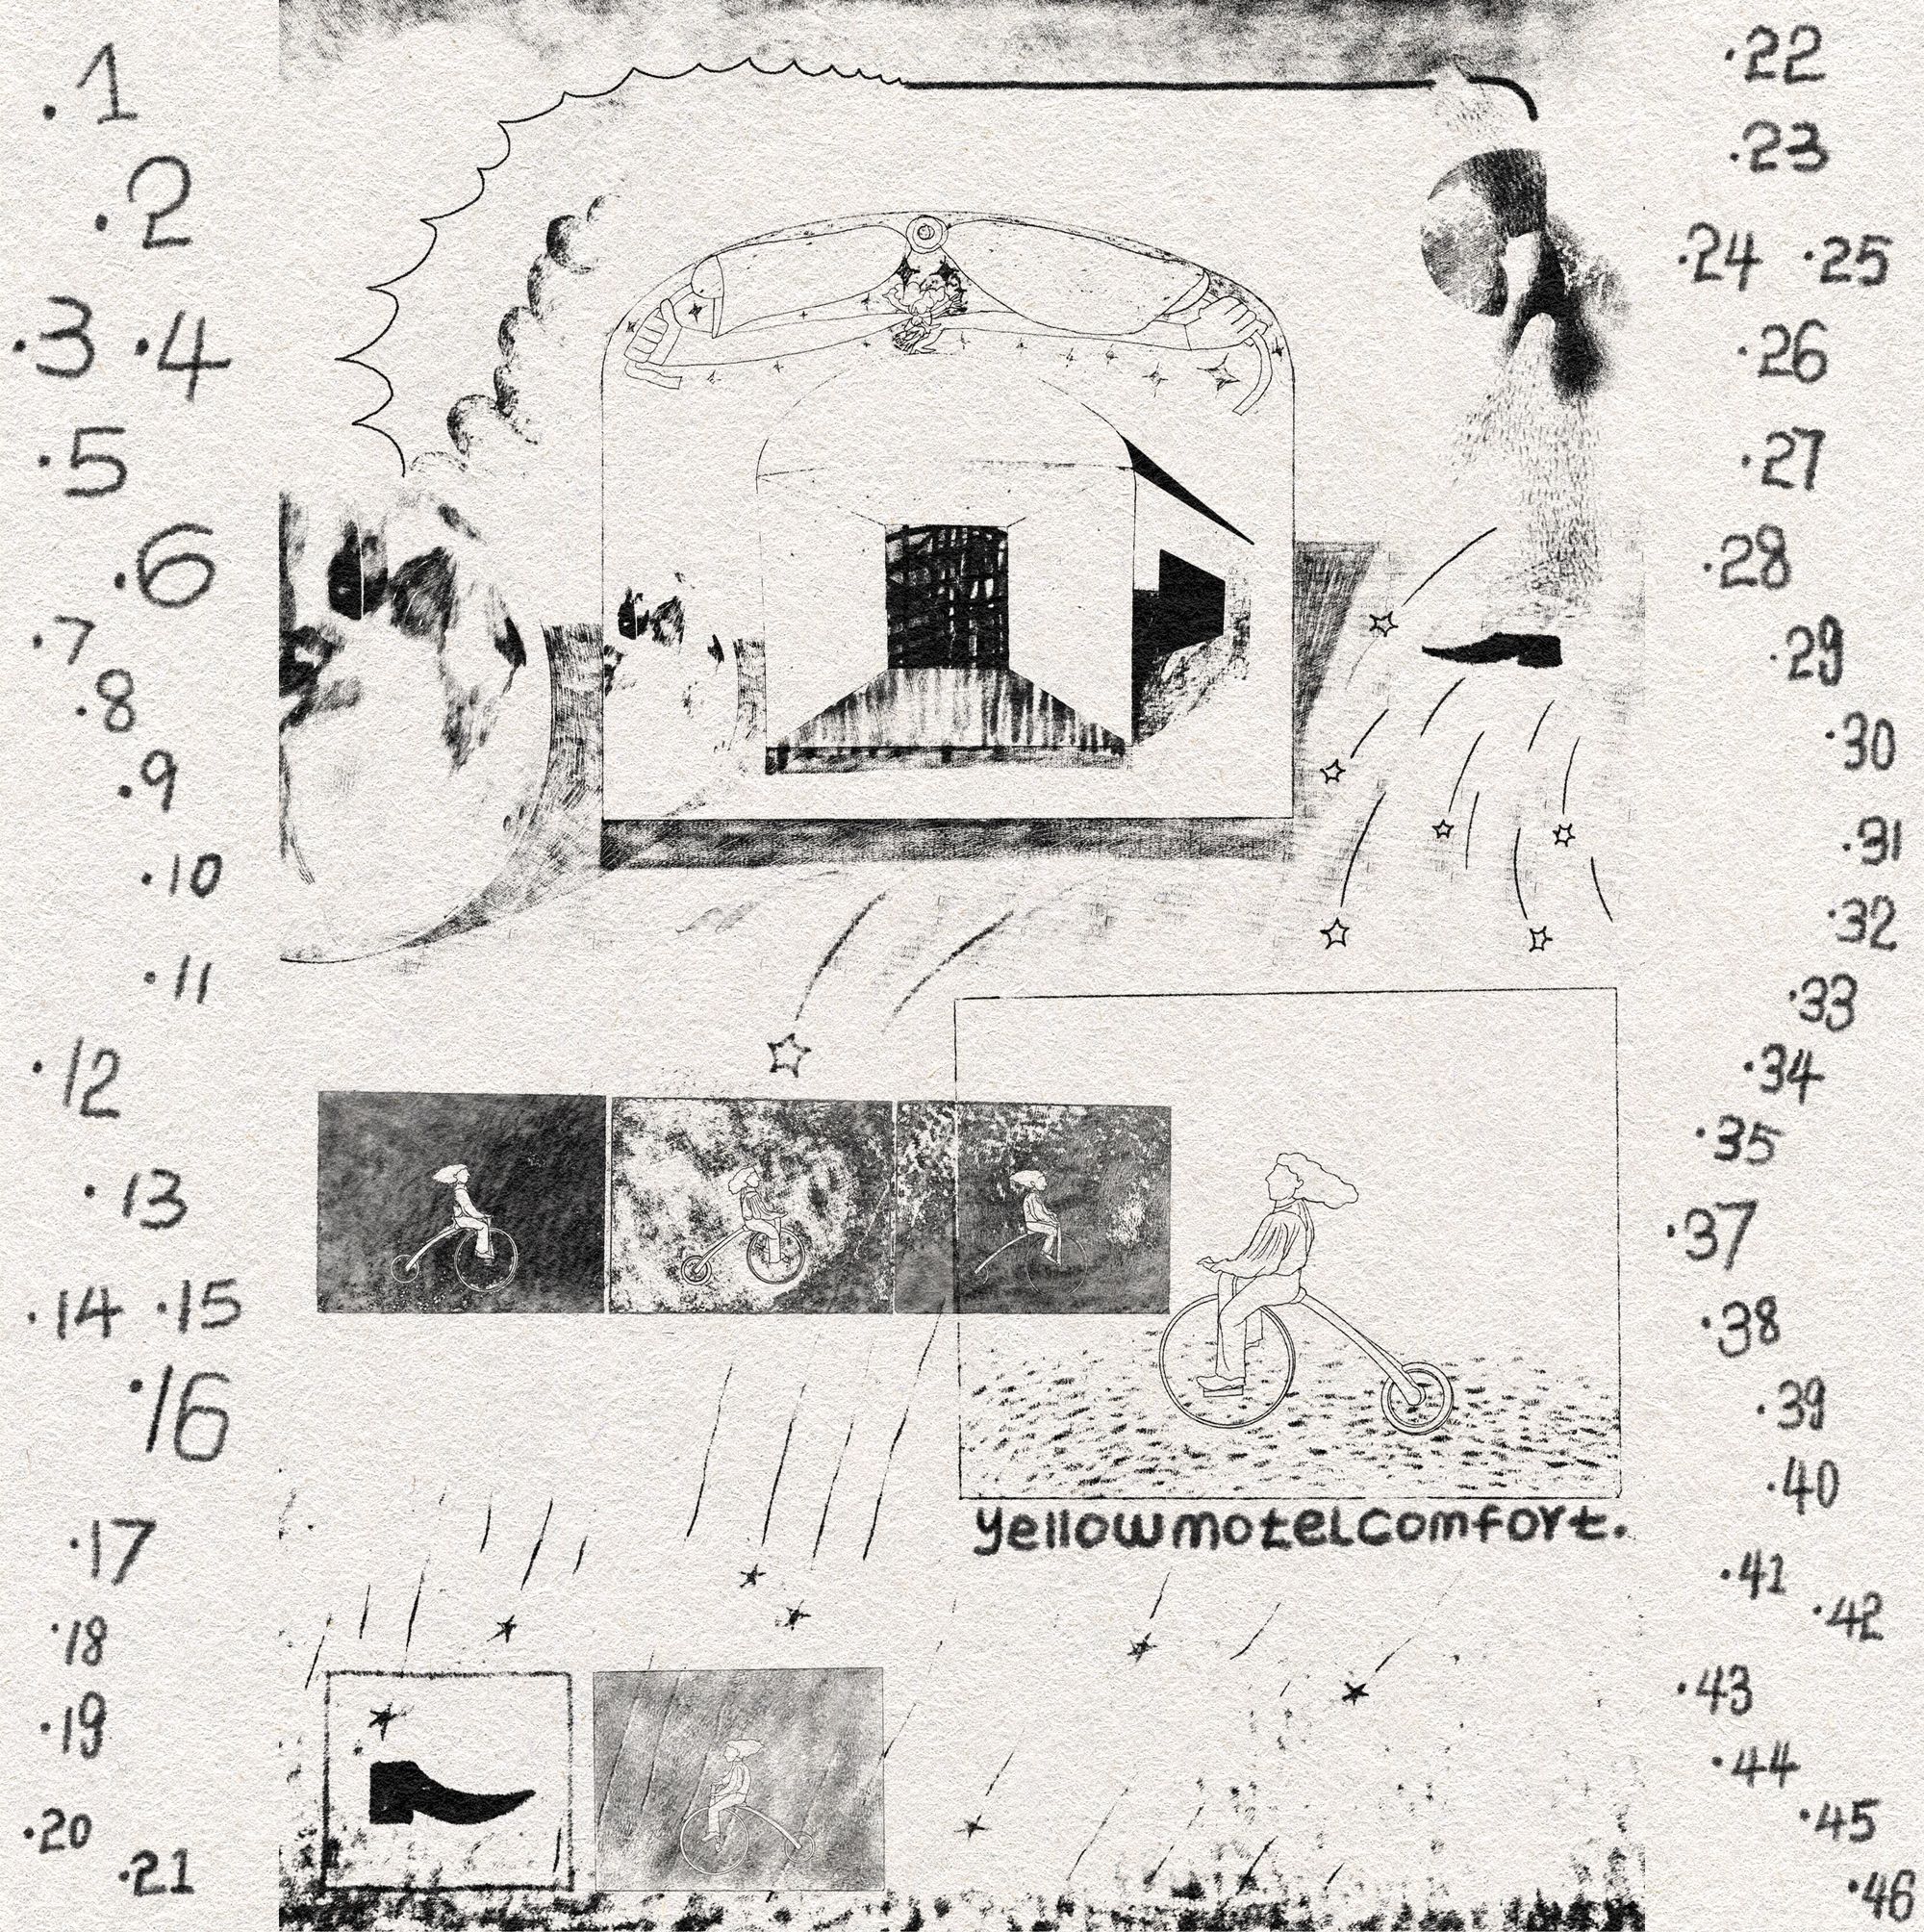 .1
.2
.3 .4
.5
.6
.7
.8
.9
.10
.11
.12
.13
.14 .15
.16
.17
.18
.19
.20
.21
.22
.23
.24 .25
.26
.27
.28
.29
.30
.31
.32
.33
.34
.35
.37
.38
.39
.40
.41
.42
.43
.44
.45
.46
yellowmotelcomfort.